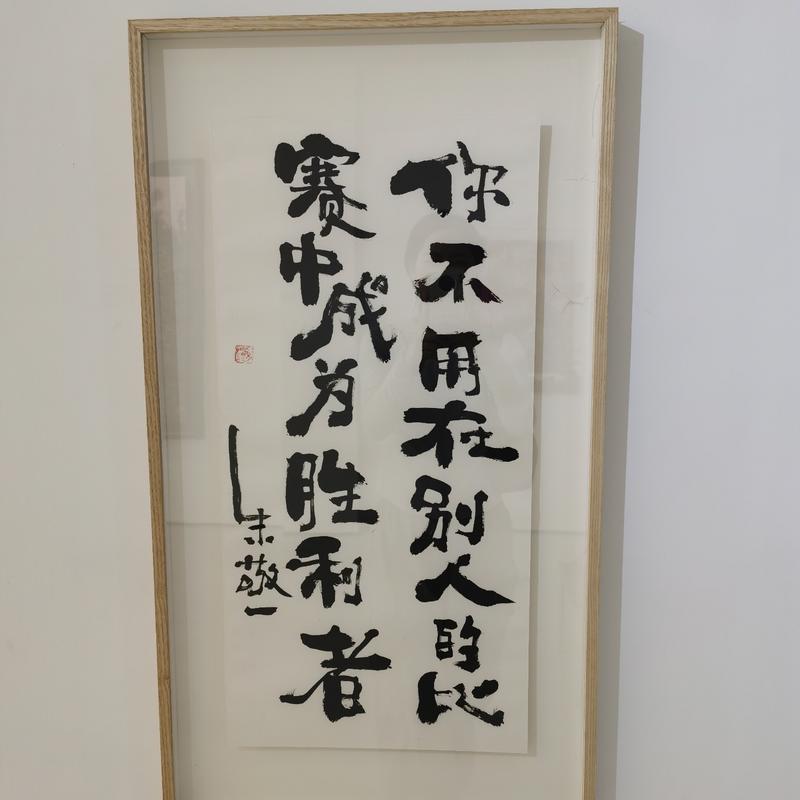 你不用在别人的比
赛中成为胜利者
朱敬一